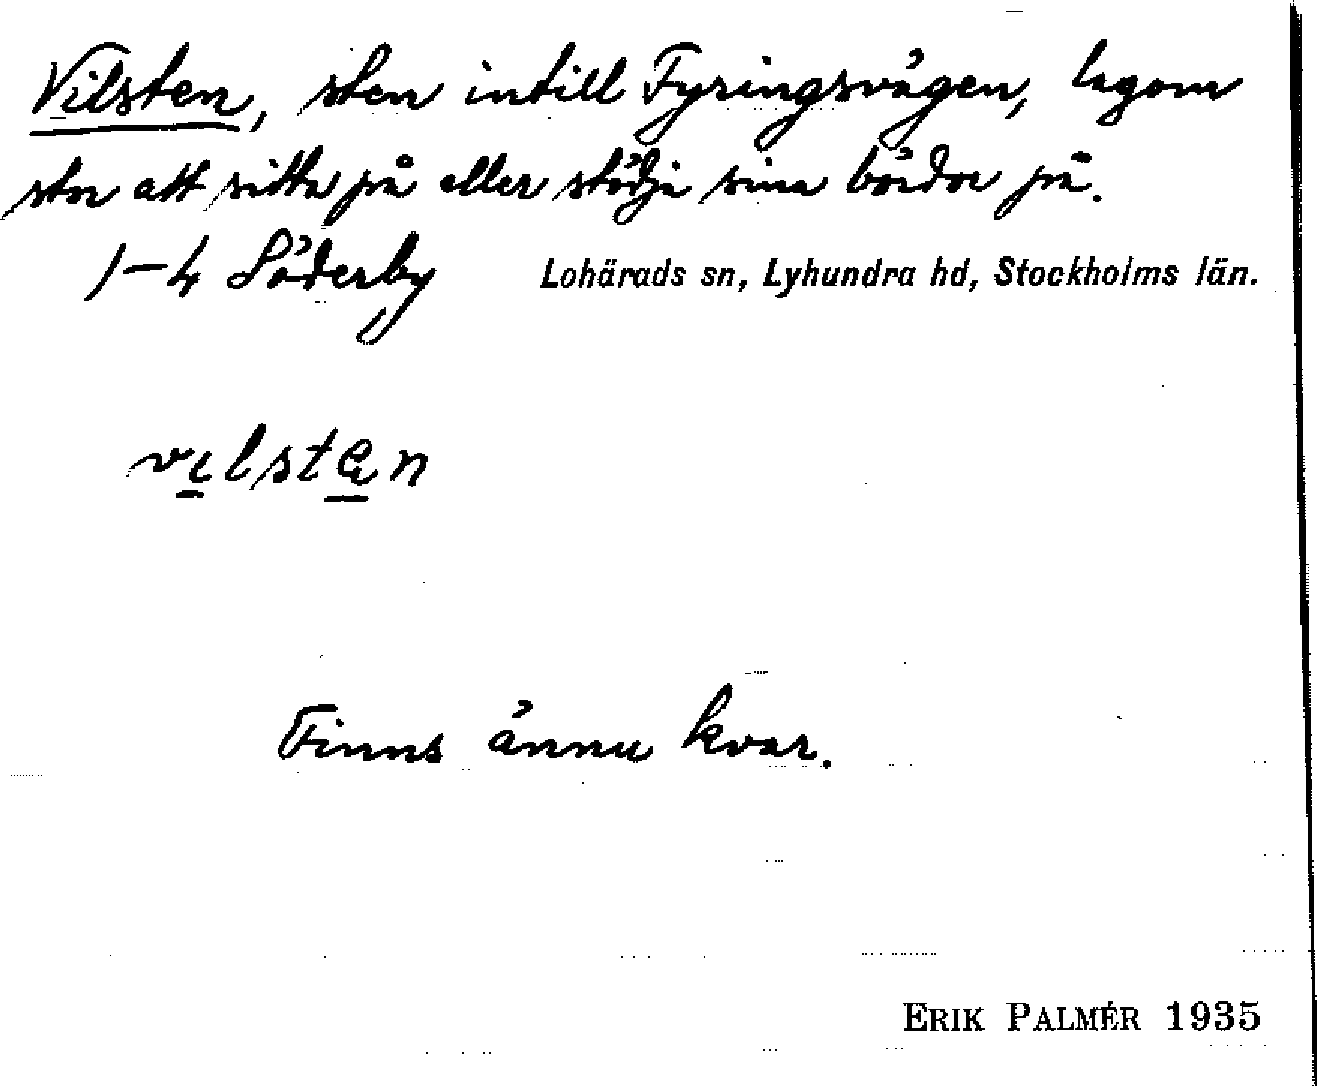 Vilsten, sten intill Fyringsvägen, lagom
stor att sitta på eller stödja sina bördor på.
1-4 Söderby Lohärads sn, Lyhundra hd, Stockholms län.
vilsten
Finns ännu kvar.
ERIK PALMÉR 1935